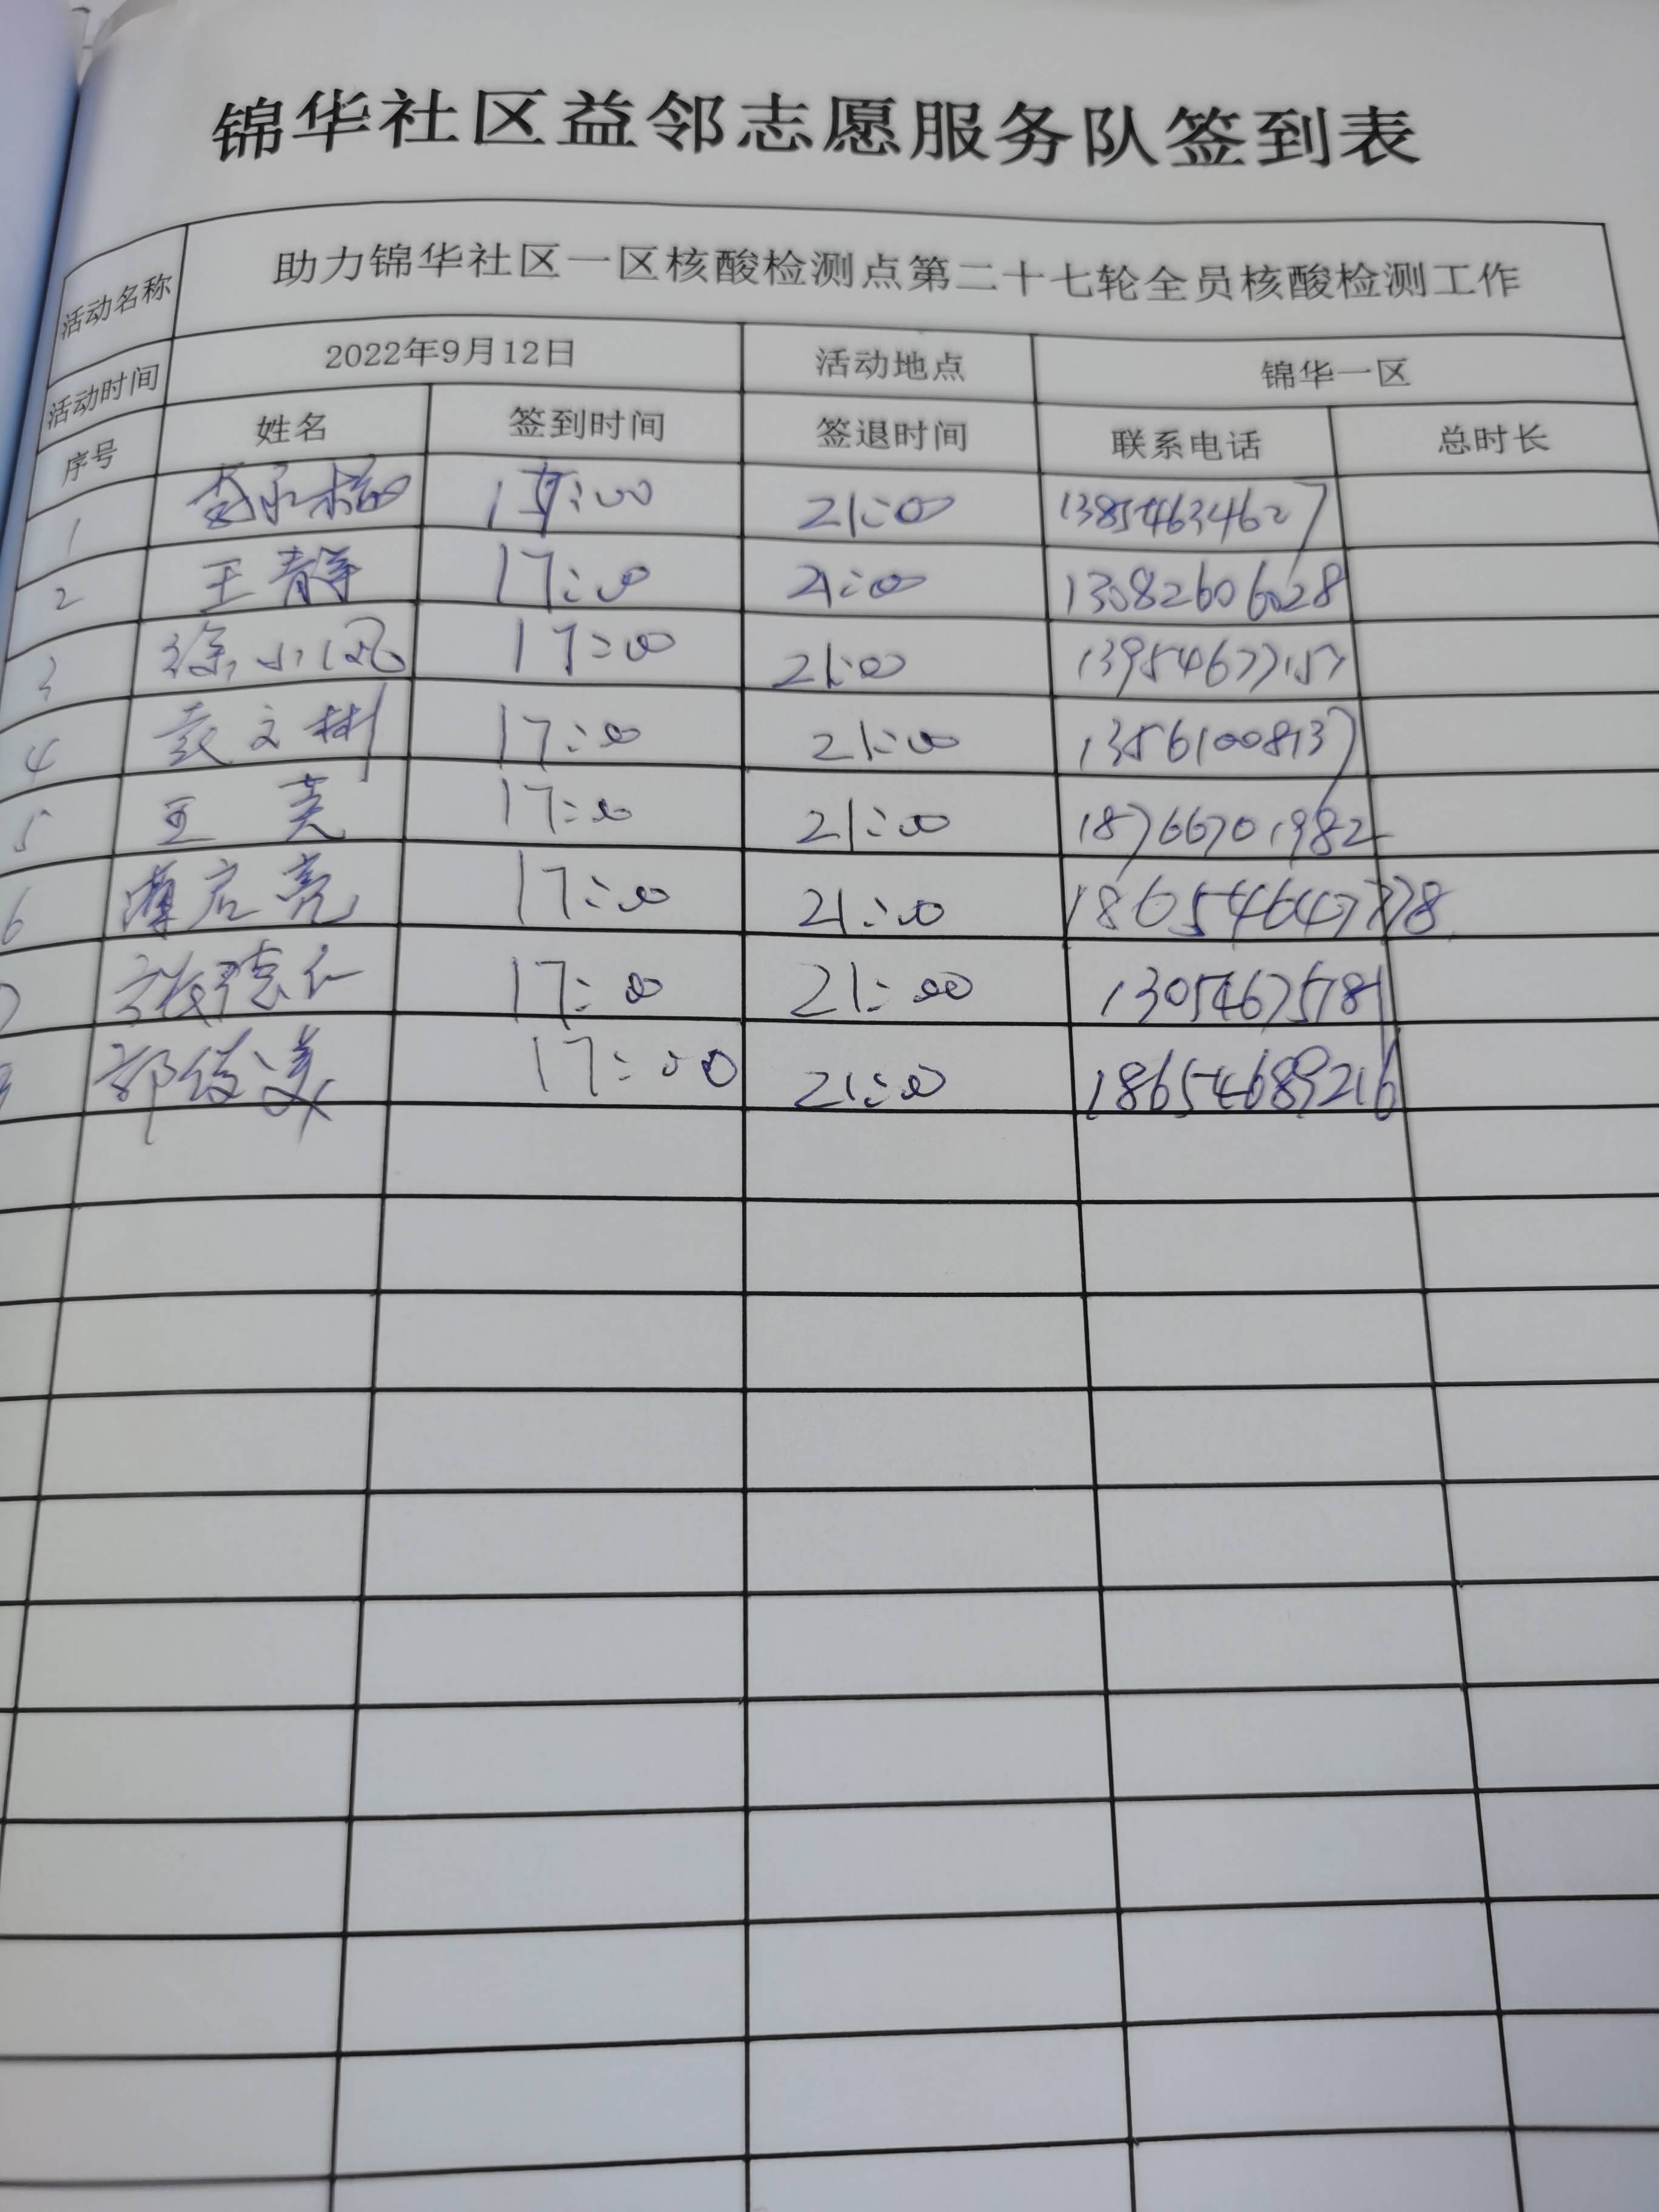 锦华社区益邻志愿服务队签到表
活动名称 助力锦华社区一区核酸检测点第二十七轮全员核酸检测工作
活动时间 2022年9月12日 活动地点 锦华一区
序号 姓名 签到时间 签退时间 联系电话 总时长
1 21:00 13854634627
2 王静 17:00 21:00 13082606028
3 徐小凤 17:00 21:00 13954677157
4 袁文彬 17:00 21:00 13561008137
5 王 17:00 21:00 18766701982
6 薄启亮 17:00 21:00
7 张德仁 17:00 21:00 13054675781
郭俊美 17:00 21:00 18654689216